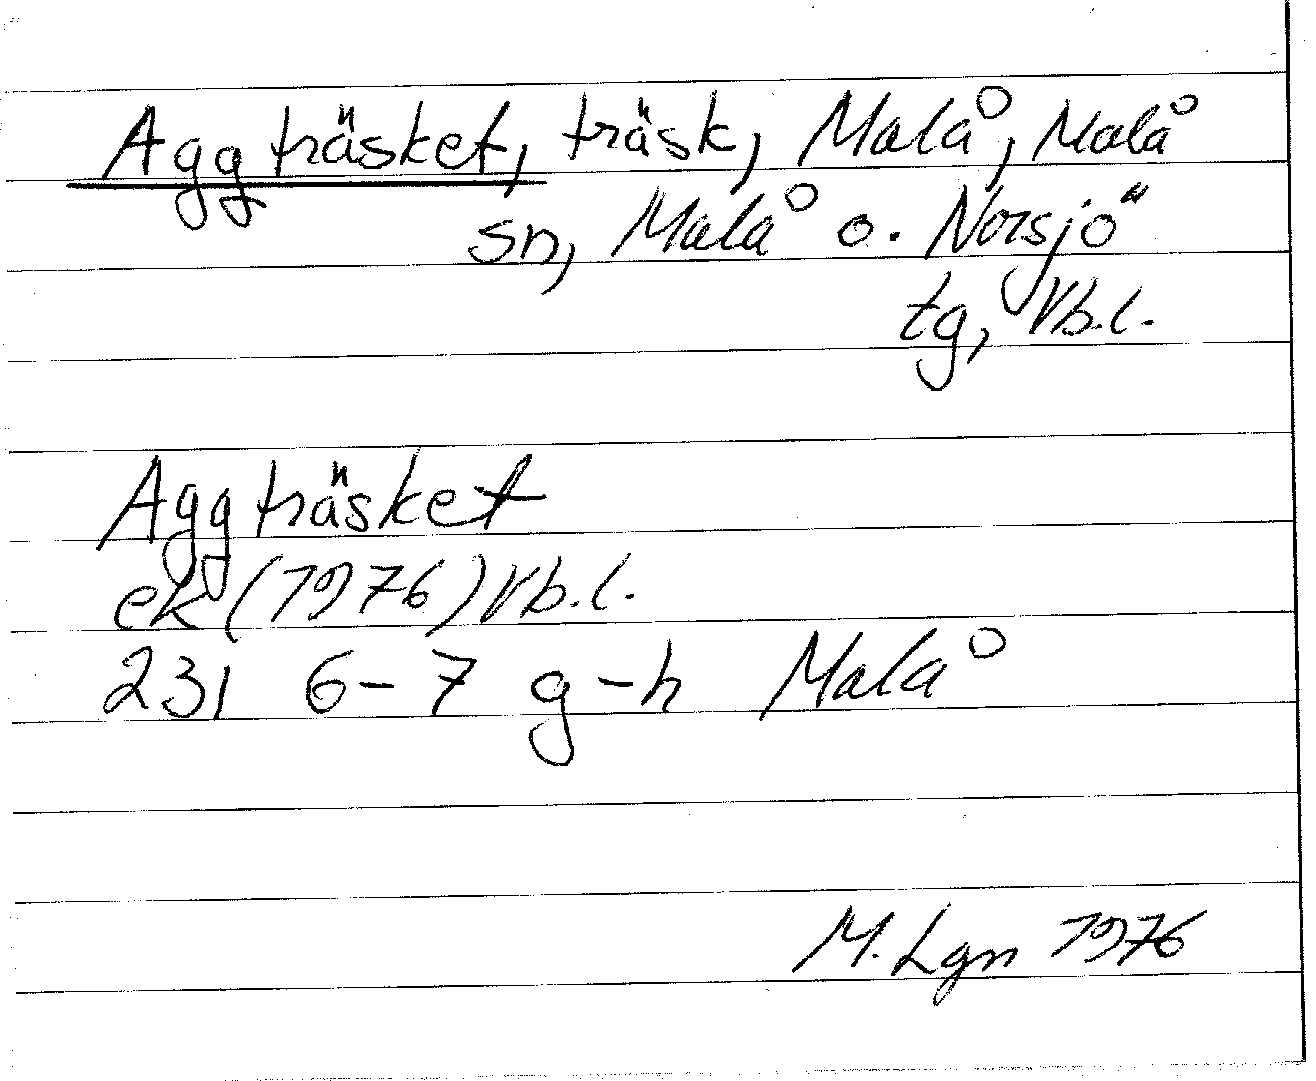 Aggträsket, träsk, Malå, Malå
sn, Malå o. Norsjö
tg, Vb.l.
Aggträsket
ek (1976) Vb.l.
231 6-7 g-h Malå
M. Lgn 1976